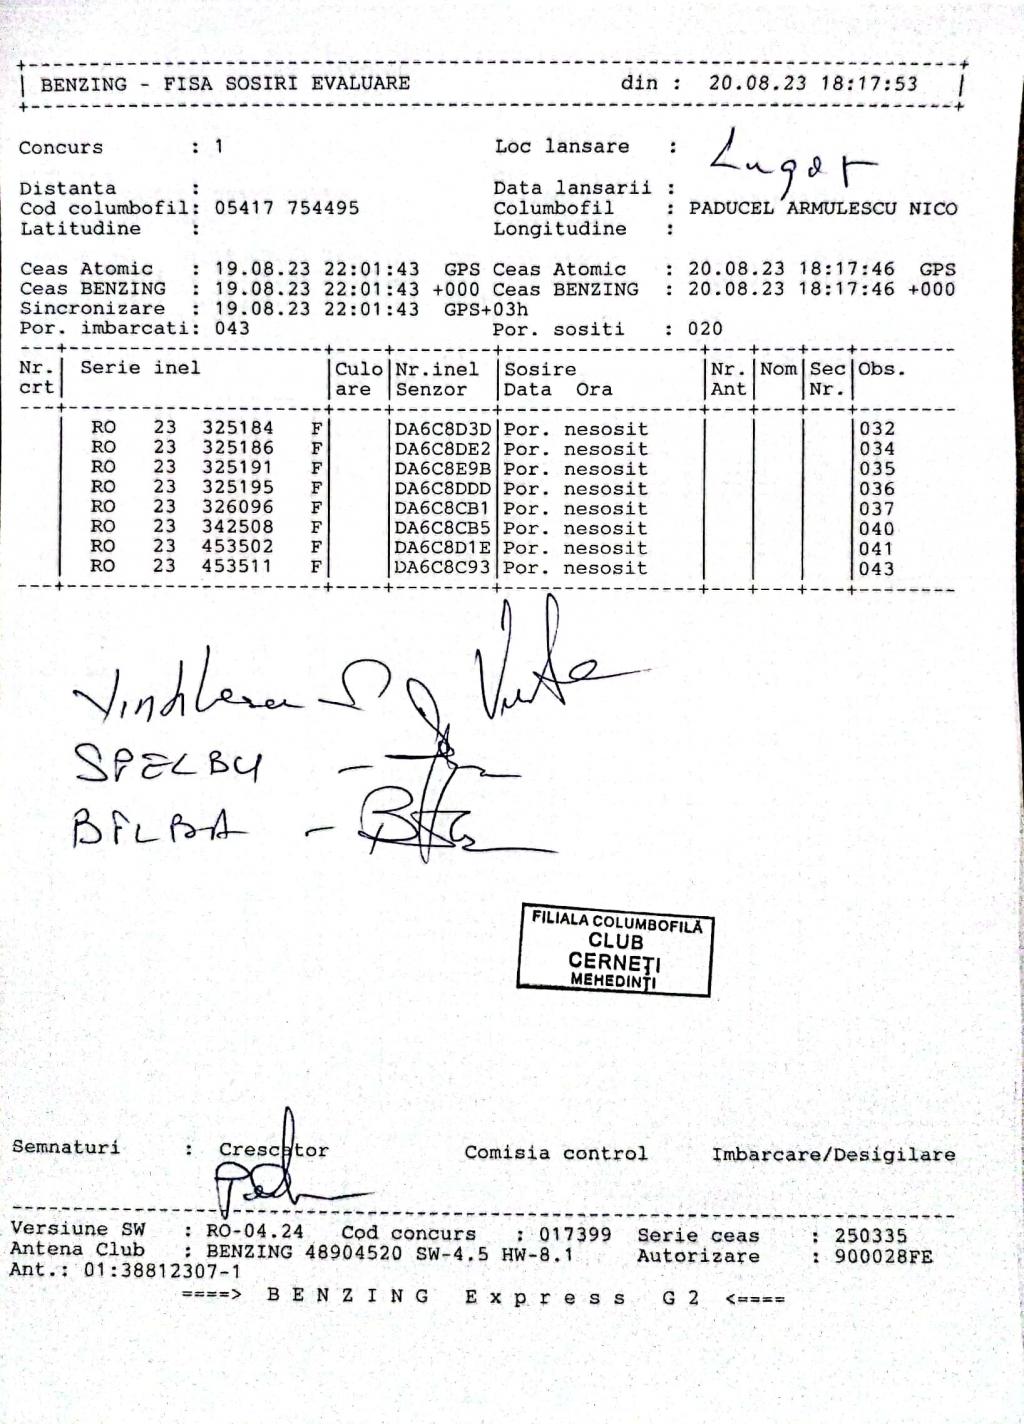 BENZING - FISA SOSIRI EVALUARE din : 20.08.23 18:17:53
Concurs : 1 Loc lansare :
Distanta : Data lansarii :
Cod columbofil: 05417 754495 Columbofil : PADUCEL ARMULESCU NICO
Latitudine : Longitudine :
Ceas Atomic : 19.08.23 22:01:43 GPS Ceas Atomic : 20.08.23 18:17:46 GPS
Ceas BENZING : 19.08.23 22:01:43 +000 Ceas BENZING : 20.08.23 18:17:46 +000
Sincronizare : 19.08.23 22:01:43 GPS+03h
Por. imbarcati: 043 Por. sositi : 020
Nr. Serie inel Culo Nr.inel Sosire Nr. Nom Sec Obs.
crt are Senzor Data Ora Ant Nr.
RO 23 325184 F DA6C8D3D Por. nesosit 032
RO 23 325186 F DA6C8DE2 Por. nesosit 034
RO 23 325191 F DA6C8E9B Por. nesosit 035
RO 23 325195 F DA6C8DDD Por. nesosit 036
RO 23 326096 F DA6C8CB1 Por. nesosit 037
RO 23 342508 F DA6C8CB5 Por. nesosit 040
RO 23 453502 F DA6C8D1E Por. nesosit 041
RO 23 453511 F DA6C8C93 Por. nesosit 043
FILIALA COLUMBOFILĂ
CLUB
CERNEȚI
MEHEDINȚI
Semnaturi : Crescator Comisia control Imbarcare/Desigilare
Versiune SW : RO-04.24 Cod concurs : 017399 Serie ceas : 250335
Antena Club : BENZING 48904520 SW-4.5 HW-8.1 Autorizare : 900028FE
Ant.: 01:38812307-1
====> BENZING Express G2 <====